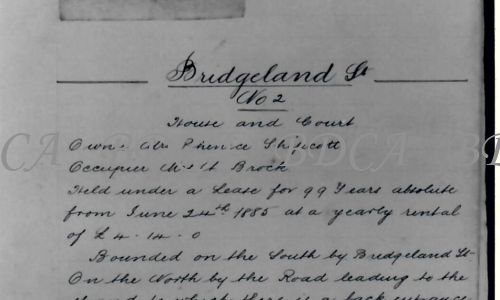 Bridgeland St
No 2
House and Court
Owner Mrs
Occupier Brock
Held under a Lease for 99 Years absolute
from June 24th 1885 at a yearly rental
of £4.14.0
Bounded on the South by Bridgeland St-
On the North by the Road leading to the
to which there is a back entrance